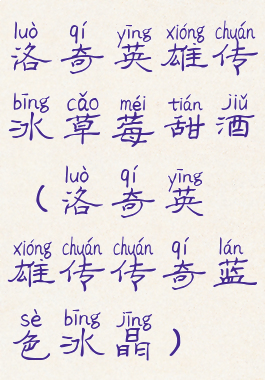 luò qí yīng xióng chuán
洛奇英雄传
bīng cǎo méi tián jiǔ
冰草莓甜酒
luò qí yīng
（洛奇英
xióng chuán chuán qí lán
雄传传奇蓝
sè bīng jīng
色冰晶）